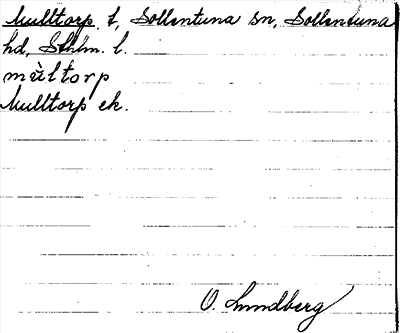 Mulltorp. t, Sollentuna sn, Sollentuna
hd, Sthlm. l.
mùltorp
Mulltorp ek.
O. Lundberg